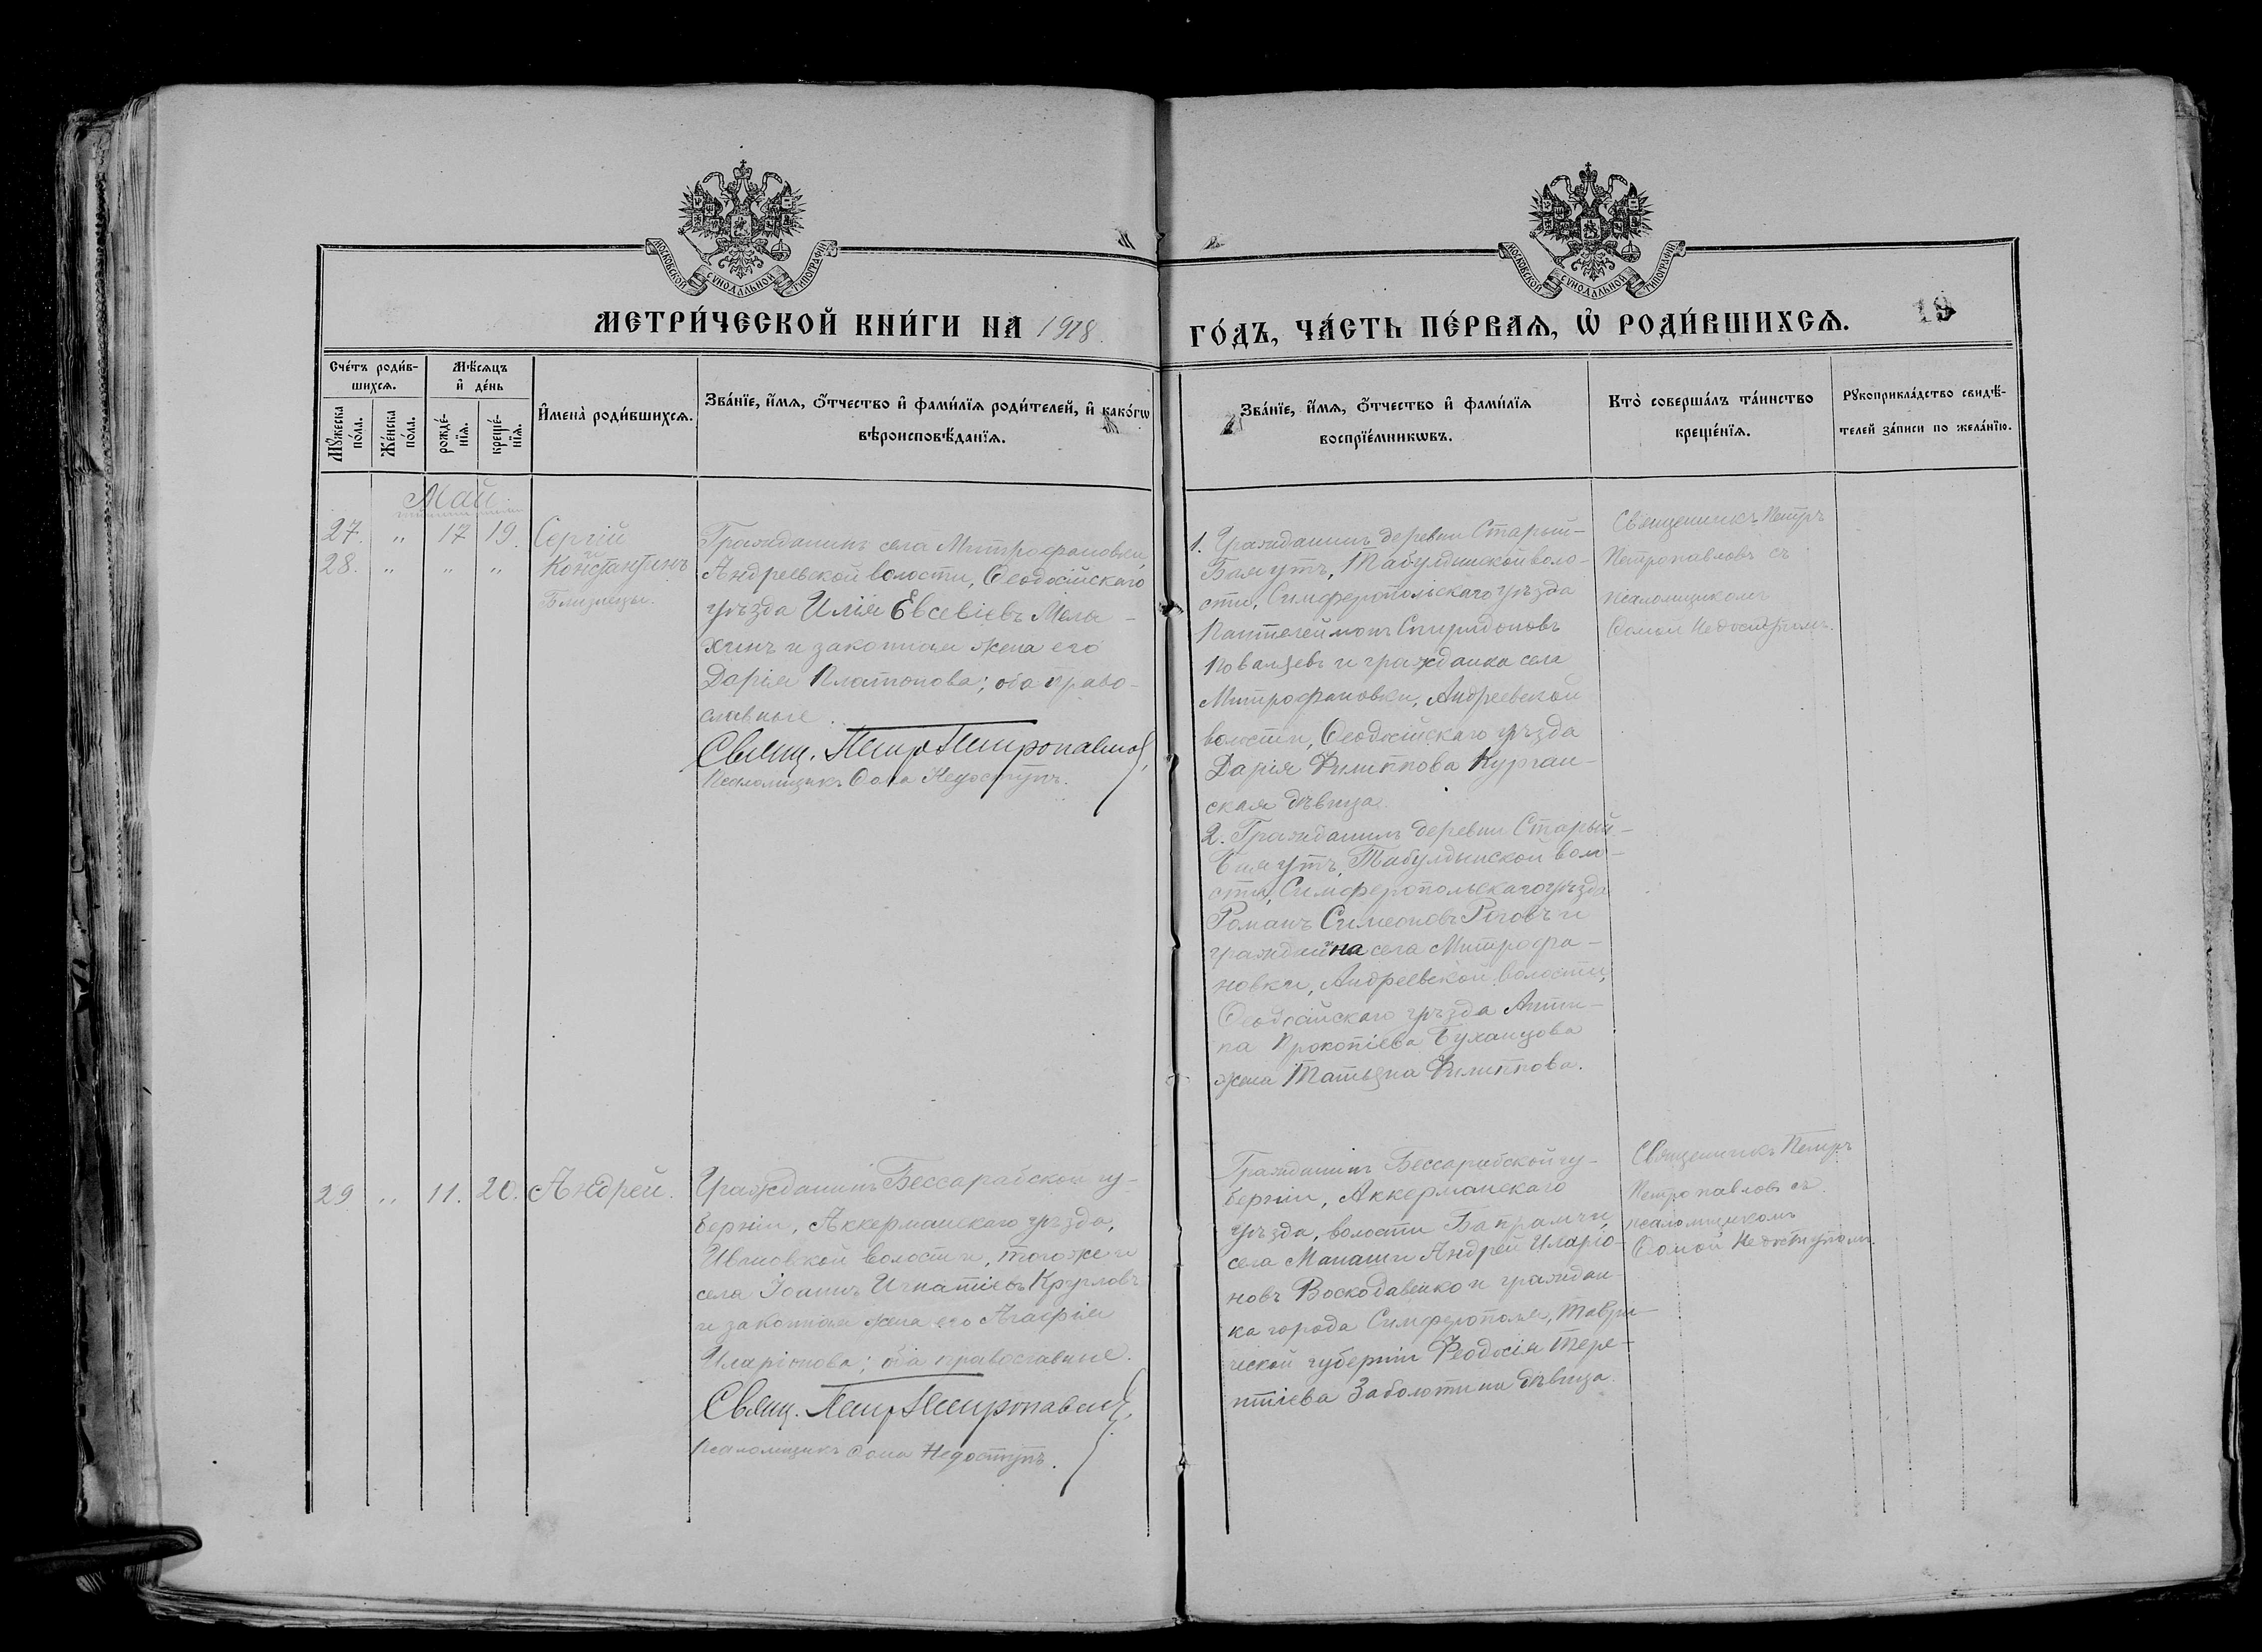 МОСКОВСКОЙ СѴНОДАЛЬНОЙ ТИПОГРАФІИ
МОСКОВСКОЙ СѴНОДАЛЬНОЙ ТИПОГРАФІИ
МЕТРИ́ЧЕСКОЙ КНИ́ГИ НА 1918.
ГО́ДЪ, ЧА́СТЬ ПЕ́РВАѦ, Ѽ РОДИ́ВШИХСѦ.
19
Сче́тъ роди́в-
шихсѧ.
Мꙋ́жеска по́ла.
Же́нска по́ла.
Мѣ́сѧцъ
и҆ де́нь
рожде́-
нїѧ.
креще́-
нїѧ.
И҆мена̀ роди́вшихсѧ.
Зва́нїе, и҆́мѧ, ѻ҆́тчество и҆ фами́лїѧ роди́телей, и҆ како́гѡ
вѣроисповѣ́данїѧ.
Зва́нїе, и҆́мѧ, ѻ҆́тчество и҆ фами́лїѧ
воспрїе́мникѡвъ.
Кто̀ соверша́лъ та́инство
креще́нїѧ.
Рꙋкоприкла́дство свидѣ́-
телей за́писи по жела́нїю.
Май.
27. „ 17 19. Сергій
и
28. „ „ „ Константинъ
Близнецы.
Гражданинъ села Митрофановки,
Андреевской волости, Ѳеодосійскаго
уѣзда Илія Евсевіевъ Мала-
хинъ и законная жена его
Дарія Платонова; оба право-
славные.
Свящ. Петръ Петропавловъ,
Псаломщикъ Ѳома Недоступъ.
1. Гражданинъ деревни Старый-
Баяутъ, Табулдинской воло-
сти, Симферопольскаго уѣзда
Пантелеймонъ Спиридоновъ
и гражданка села
Митрофановки, Андреевской
волости, Ѳеодосійскаго уѣзда
Дарія Филиппова Курган-
ская дѣвица.
2. Гражданинъ деревни Старый-
Баяутъ, Табулдинской воло-
сти, Симферопольскаго уѣзда
Романъ Симеоновъ Роговъ и
гражданина села Митрофа-
новки, Андреевской волости,
Ѳеодосійскаго уѣзда Анти-
па Прокопіева Буханцова
жена Татьяна Филиппова.
Священникъ Петръ
Петропавловъ съ
псаломщикомъ
Ѳомой Недоступомъ.
29 „ 11. 20. Андрей.
Гражданинъ Бессарабской гу-
берніи, Аккерманскаго уѣзда,
Ивановской волости, того же и
села Іоаннъ Игнатіевъ Кругловъ
и законная жена его Агафія
Иларіонова; оба православные.
Свящ. Петръ Петропавловъ,
Псаломщикъ Ѳома Недоступъ.
Гражданинъ Бессарабской гу-
берніи, Аккерманскаго
уѣзда, волости
села Манаши Андрей Иларіо-
новъ Воскодавенко и граждан-
ка города Симферополя, Таври-
ческой губерніи Ѳеодосія Тере-
нтіева Заболотина дѣвица.
Священникъ Петръ
Петропавловъ съ
псаломщикомъ
Ѳомой Недоступомъ.